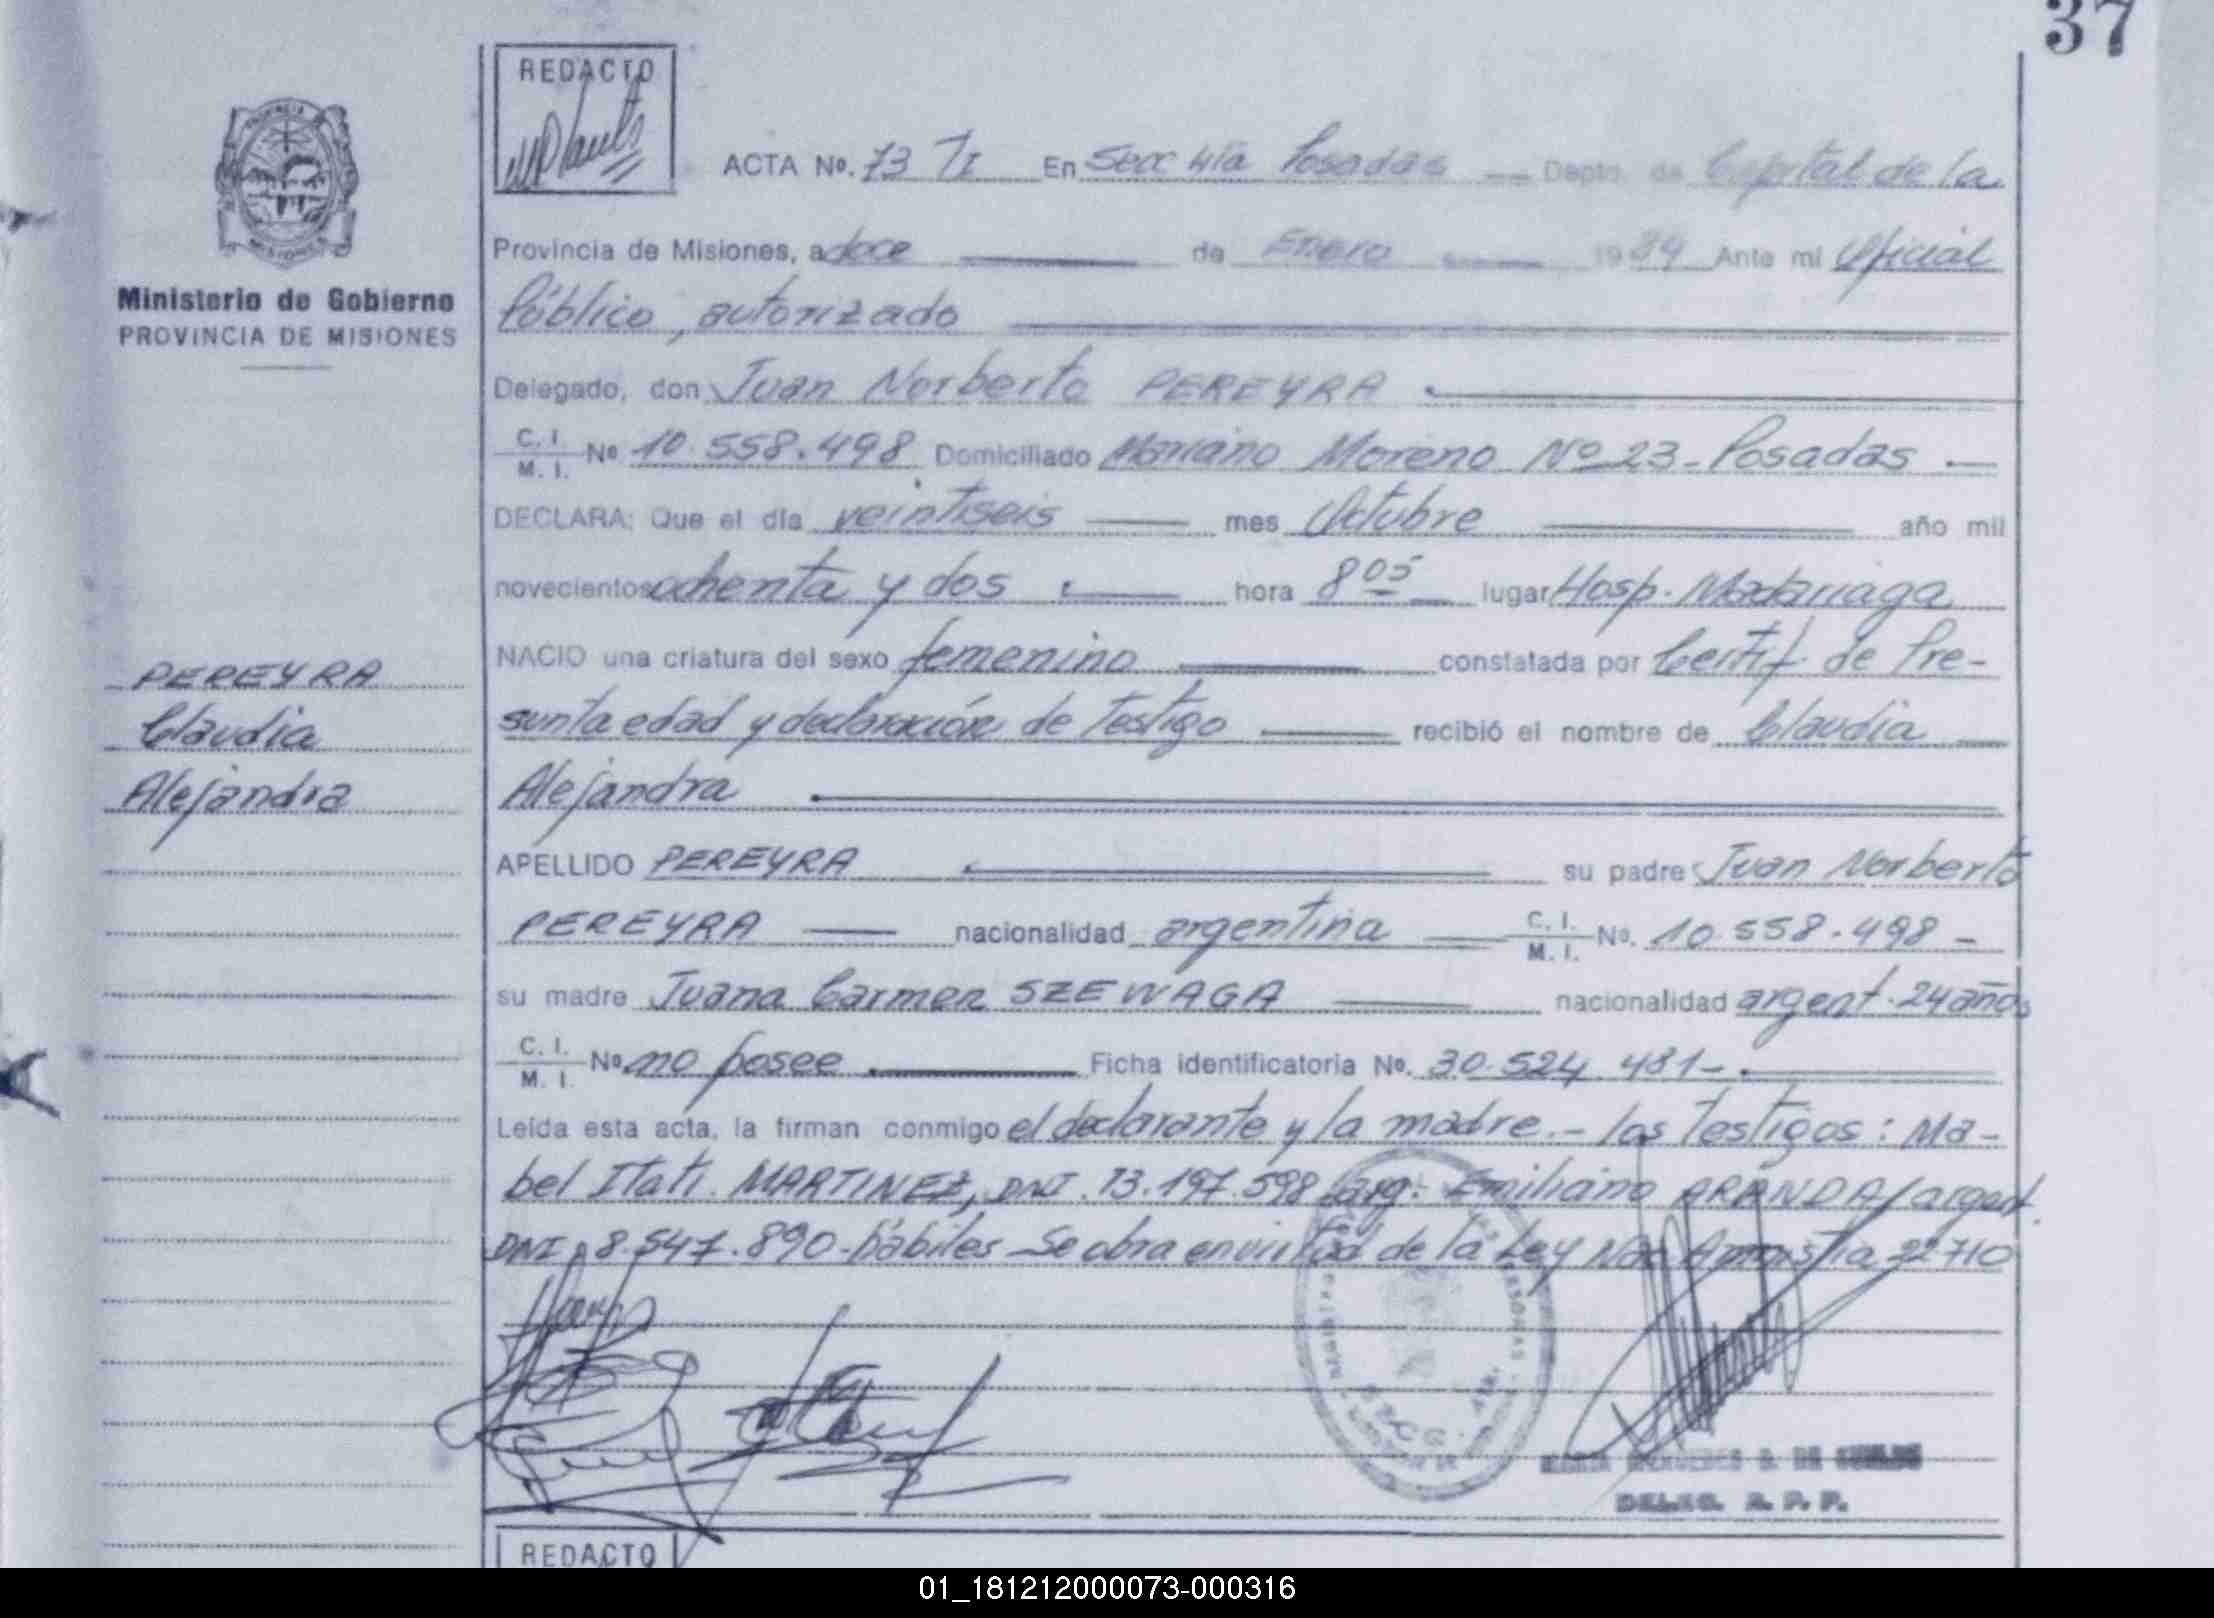 37
REDACTO
PROVINCIA
MISIONES
ACTA Nº. 73 TI En Secc 4ta Posadas Depto. de Capital de la
Ministerio de Gobierno
PROVINCIA DE MISIONES
Provincia de Misiones, a doce de Enero 1984 Ante mi Oficial
Público, autorizado
Delegado, don Juan Norberto PEREYRA
C. I. / M. I. Nº 10.558.498 Domiciliado Mariano Moreno Nº 23 - Posadas
DECLARA: Que el día veintiseis mes Octubre año mil
novecientos ochenta y dos hora 8 05 lugar Hosp. Madariaga
NACIO una criatura del sexo femenino constatada por Certif. de Pre-
sunta edad y declaración de testigo recibió el nombre de Claudia
Alejandra
PEREYRA
Claudia
Alejandra
APELLIDO PEREYRA su padre Juan Norberto
PEREYRA nacionalidad argentina C. I. / M. I. Nº. 10.558.498 -
su madre Juana Carmen SZEWAGA nacionalidad argent. 24 años
C. I. / M. I. Nº. no posee Ficha identificatoria No. 30.524.481 -
Leída esta acta, la firman conmigo el declarante y la madre. - los testigos: Ma-
bel Itati MARTINEZ, DNI. 13.197.598 arg. Emiliano ARANDA, argent.
DNI 8.547.890 - hábiles - Se obra en virtud de la Ley Nac Amnistia 22710
DE
DELEG. R. P. P.
REDACTO
01_181212000073-000316